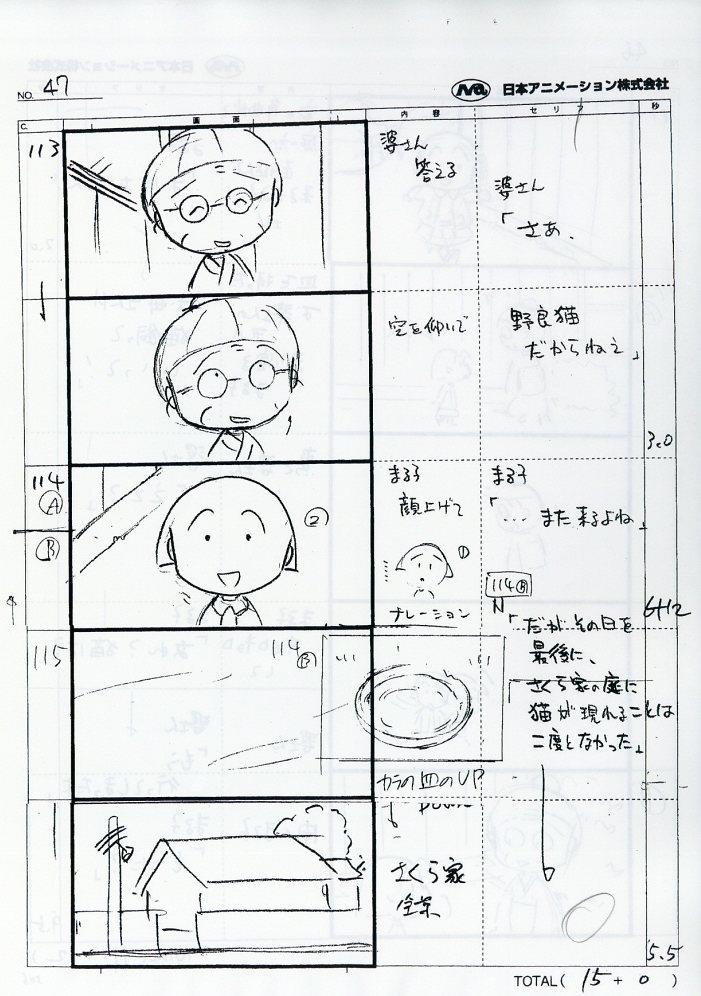 NO. 47
日本アニメーション株式会社
C. 画面 内容 セリフ 秒
113
婆さん
答える
婆さん
「さあ、
空を仰いで
野良猫
だからねえ」
3.0
114
A
B
②
まる子
顔上げて
①
まる子
「… また来るよね」
114 B
ナレーション
N
6+12
「だがその日を
最後に、
「さくら家の庭に
猫が現れることは
二度となかった」
115
114
B
カラの皿のUP
さくら家
全景
5.5
TOTAL( 15 + 0 )